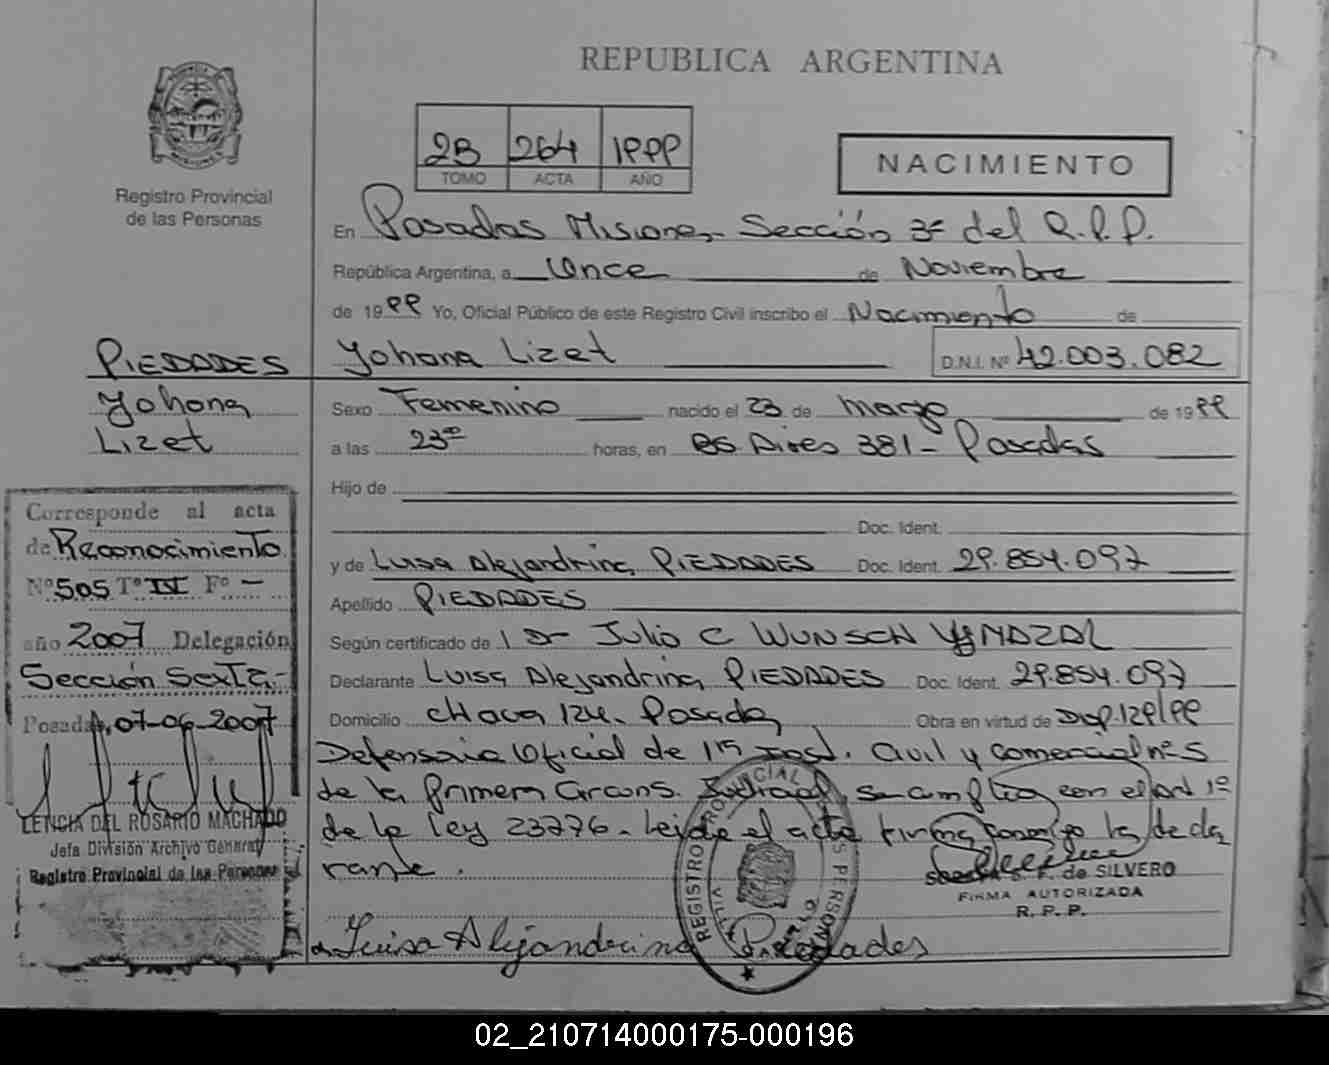 REPUBLICA ARGENTINA
2B 264 1999
TOMO ACTA AÑO
NACIMIENTO
Registro Provincial
de las Personas
En Posadas Misiones - Sección 3ª del R.P.P.
República Argentina, a Once de Noviembre
de 1999 Yo, Oficial Público de este Registro Civil inscribo el Nacimiento de
Yohana Lizet D.N.I. Nº 42.003.082
PIEDADES
Yohana
Lizet
Sexo Femenino nacido el 23 de marzo de 1999
a las 23ºº horas, en Bs Aires 381 - Posadas
Hijo de
Doc. Ident.
y de Luisa Alejandrina PIEDADES Doc. Ident. 29.854.097
Apellido PIEDADES
Según certificado de Dr Julio C WUNSCH
Declarante Luisa Alejandrina PIEDADES Doc. Ident. 29.854.097
Domicilio CHACRA 124 - Posadas Obra en virtud de Disp. 129/99
Defensoria Oficial de 1ra Inst. Civil y Comercial nº 5
de la primera Circuns. Judicial, se cumplió con el art 1º
de la Ley 23776 - Leida el acta firma conmigo la decla
rante.
Luisa Alejandrina Piedades
Corresponde al acta
de Reconocimiento
Nº 505 Tº IV Fº -
año 2007 Delegación
Sección Sexta -
Posadas, 07-06-2007
LENCIA DEL ROSARIO MACHADO
Jefa División Archivo General
Registro Provincial de las Personas
REGISTRO PROVINCIAL DE LAS PERSONAS
de SILVERO
FIRMA AUTORIZADA
R. P. P.
02_210714000175-000196